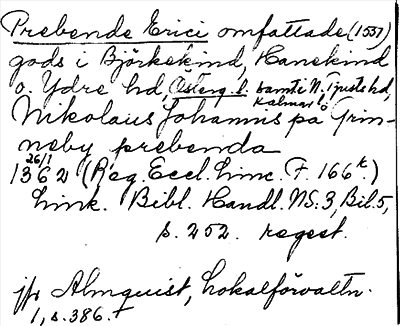 Prebende Erici omfattade (1551)
gods i Björkekind, Hanekind
o. Ydre hd, Österg. l. samt i N. Tjusts hd,
Kalmar l.
Nikolaus Johannis på Grin-
neby prebenda
26/1
1362 (Reg. Eccl. Linc. F. 166 .)
Link. Bibl. Handl. NS. 3, Bil. 5,
s. 252. regest.
jfr Almquist, Lokalförvaltn.
1, s. 386. +